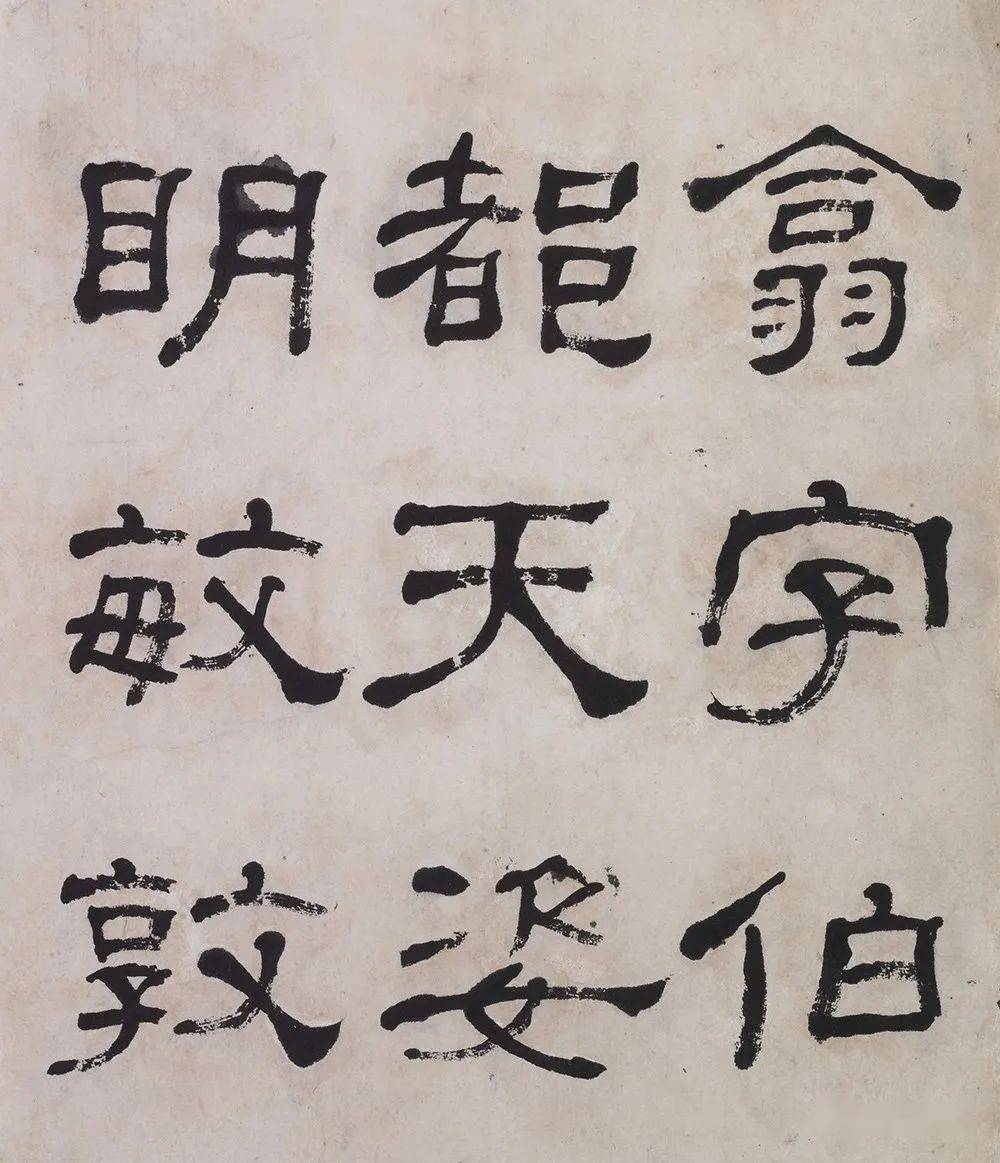 翕字伯
都天姿
明敏敦